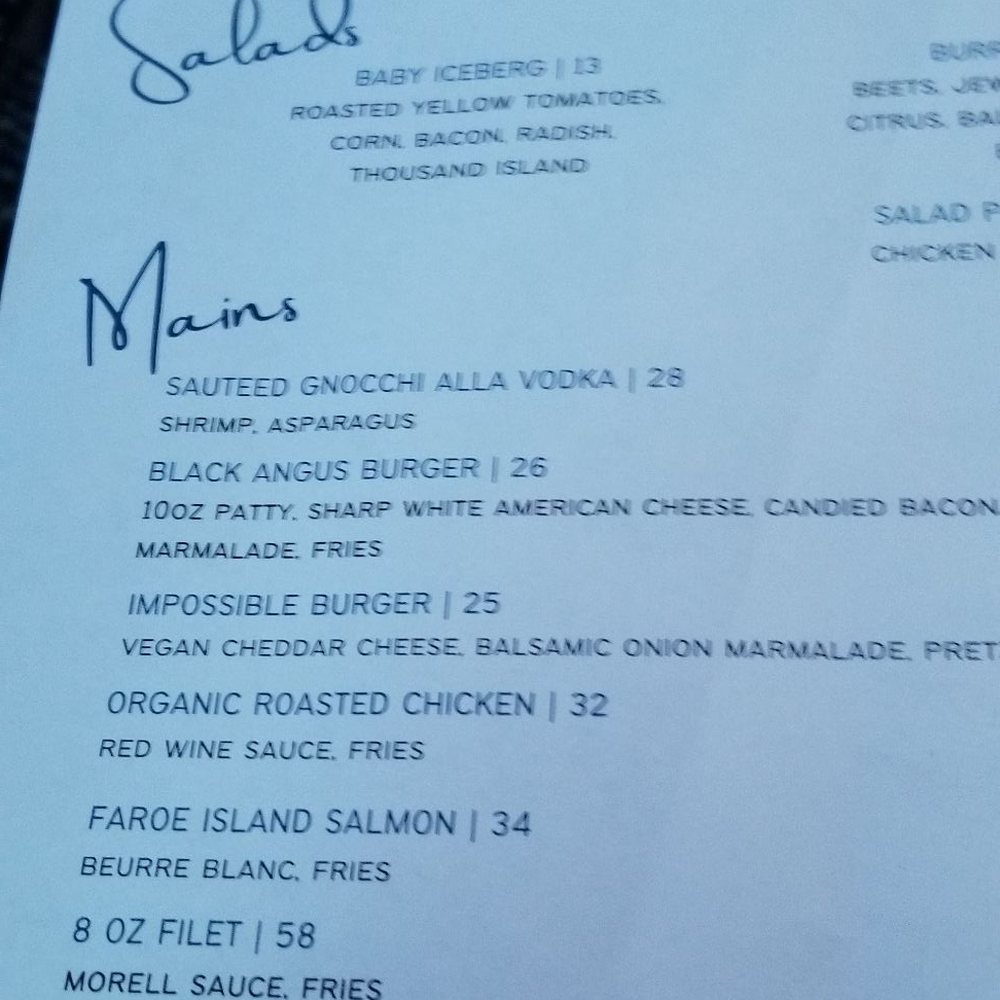 Salads
BABY ICEBERG | 13
ROASTED YELLOW TOMATOES,
CORN, BACON, RADISH,
THOUSAND ISLAND
BEETS,
CITRUS,
SALAD
CHICKEN
Mains
SAUTEED GNOCCHI ALLA VODKA | 28
SHRIMP, ASPARAGUS
BLACK ANGUS BURGER | 26
10OZ PATTY, SHARP WHITE AMERICAN CHEESE, CANDIED BACON
MARMALADE, FRIES
IMPOSSIBLE BURGER | 25
VEGAN CHEDDAR CHEESE, BALSAMIC ONION MARMALADE, PRET
ORGANIC ROASTED CHICKEN | 32
RED WINE SAUCE, FRIES
FAROE ISLAND SALMON | 34
BEURRE BLANC, FRIES
8 OZ FILET | 58
MORELL SAUCE, FRIES